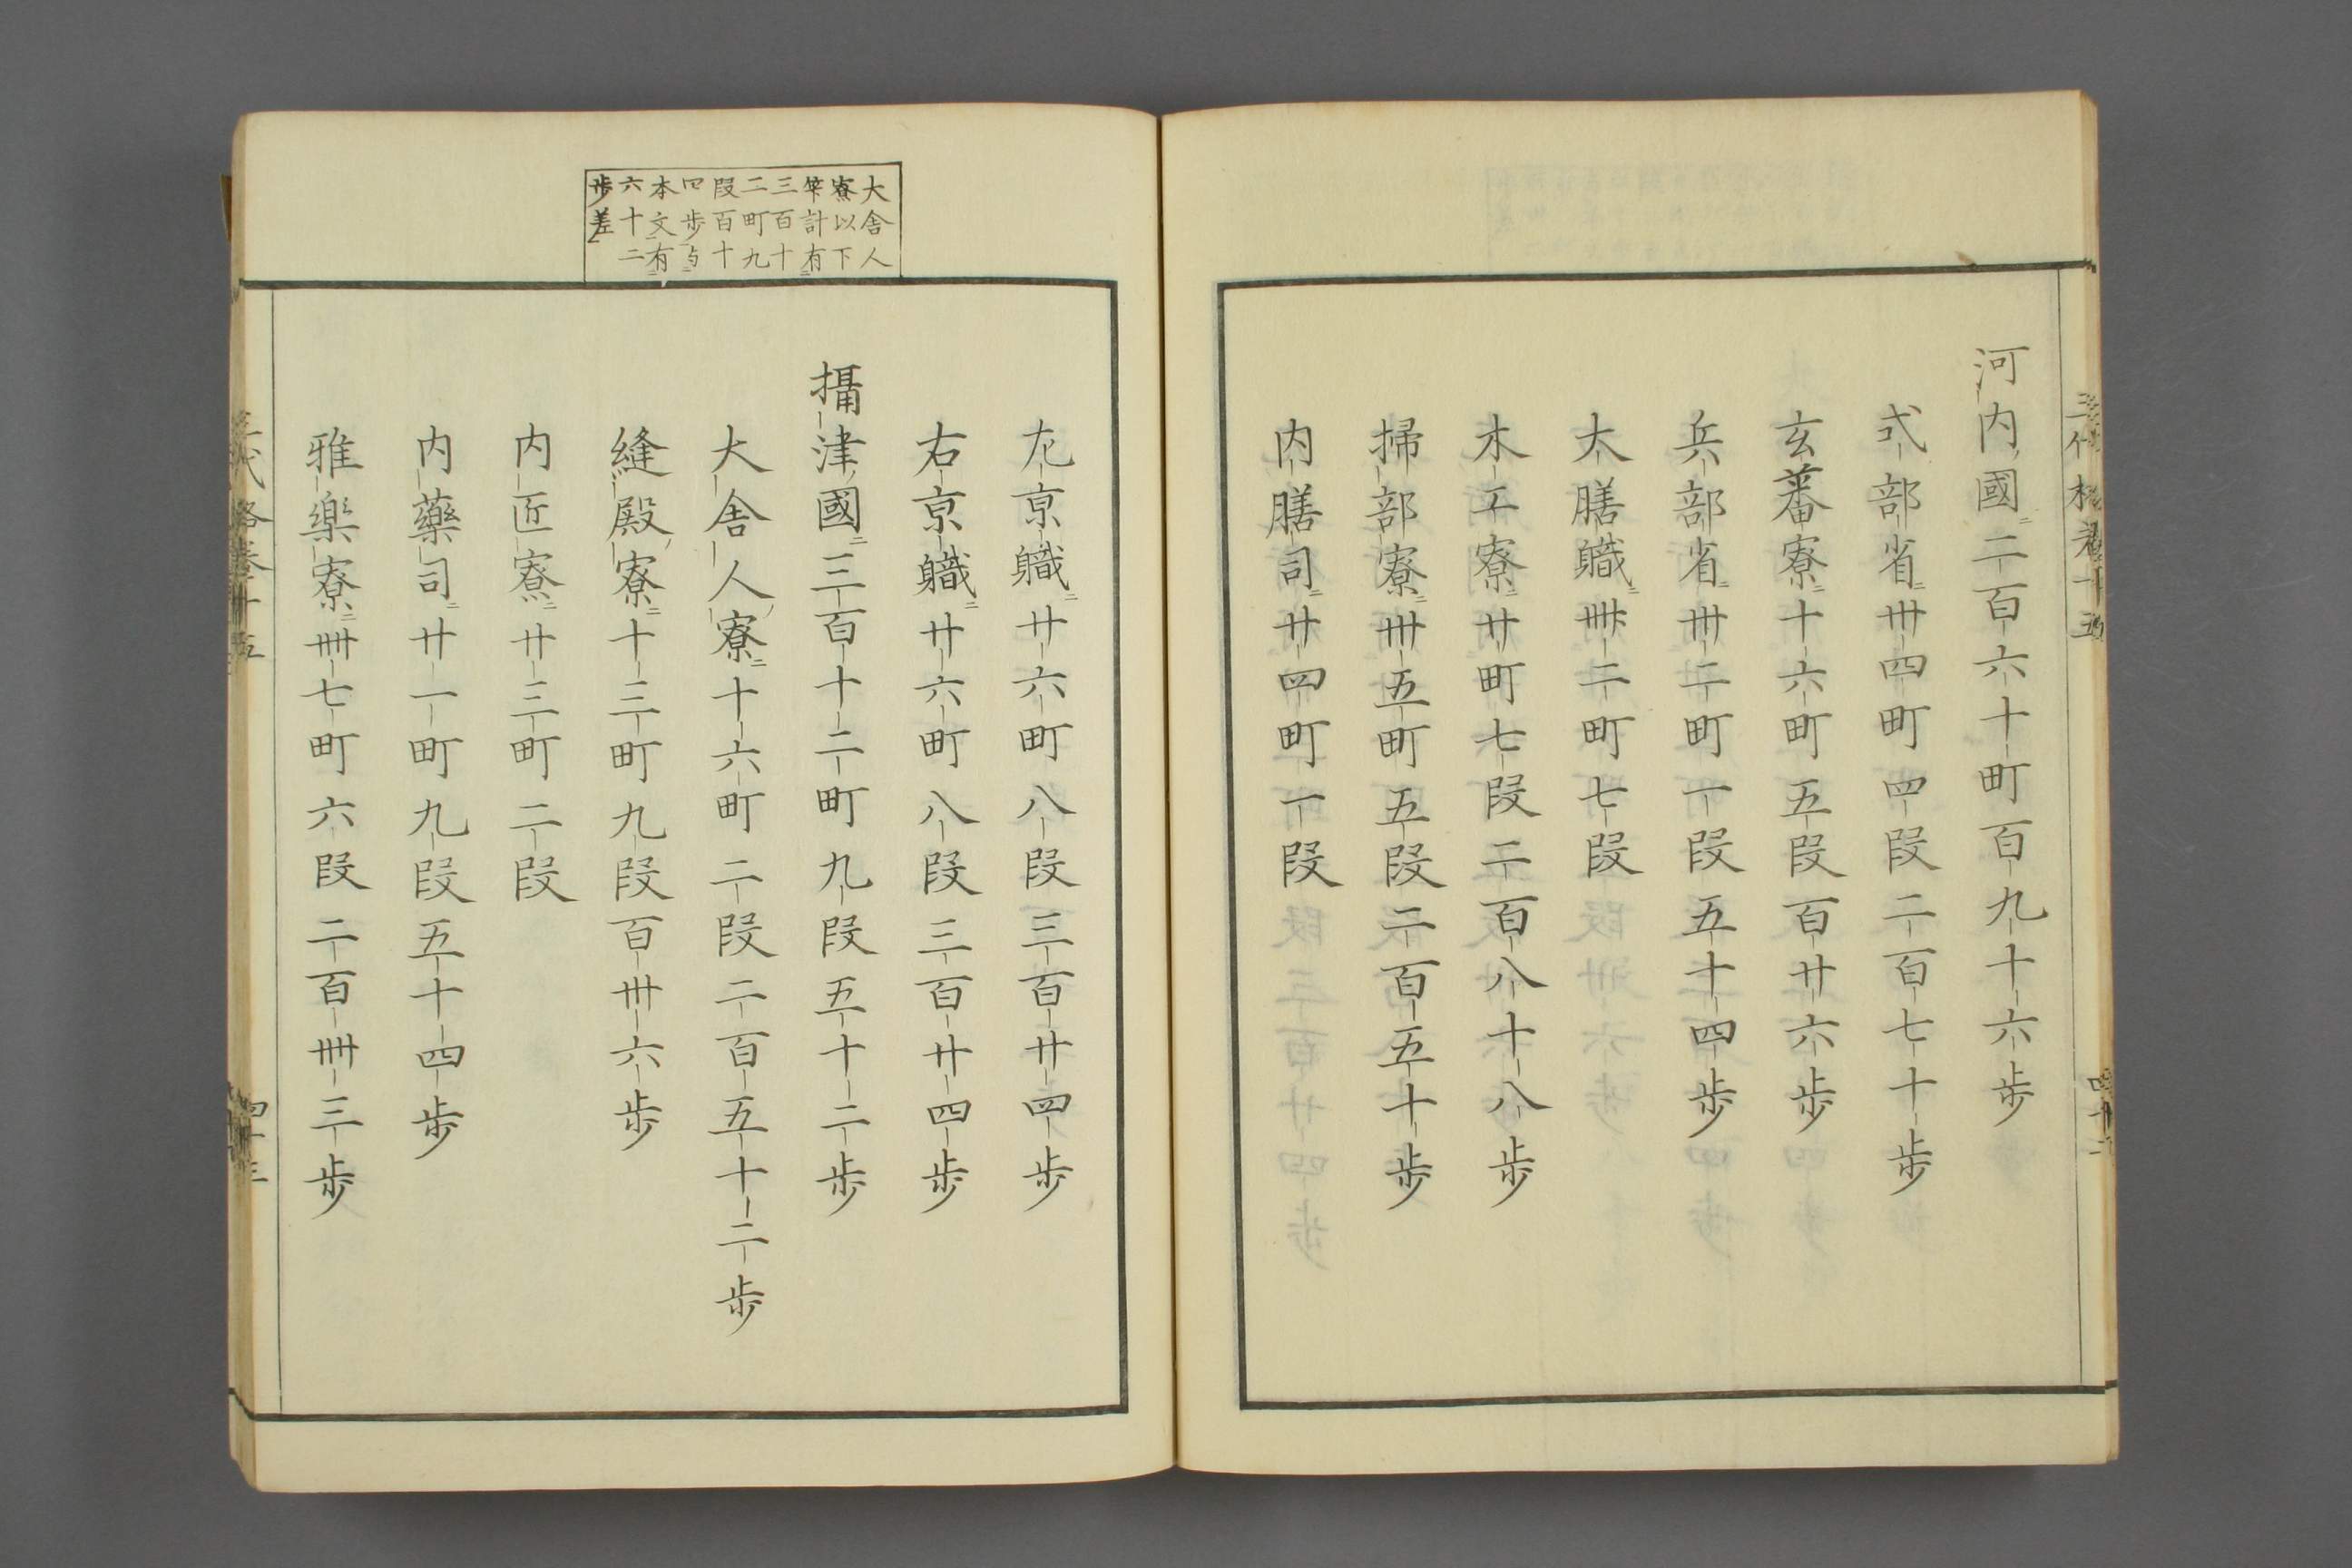 三代格卷十五
河内國二百六十町百九十六歩
式部省卅四町四段二百七十歩
玄蕃寮十六町五段百廿六歩
兵部省卅二町一段五十四歩
大膳職卌二町七段
木工寮廿町七段二百八十八歩
掃部寮卅五町五段二百五十歩
内膳司廿四町一段
大舎人
寮以下
筭計有
三百十
二町九
段百十
四歩与
本文有
六十二
歩差
左京職廿六町八段三百廿四歩
右京職廿六町八段三百廿四歩
攝津國三百十二町九段五十二歩
大舎人寮十六町二段二百五十二歩
縫殿寮十三町九段百卅六歩
内匠寮廿三町二段
内藥司廿一町九段五十四歩
雅楽寮卌七町六段二百卌三歩
三代格卷十五
四十三